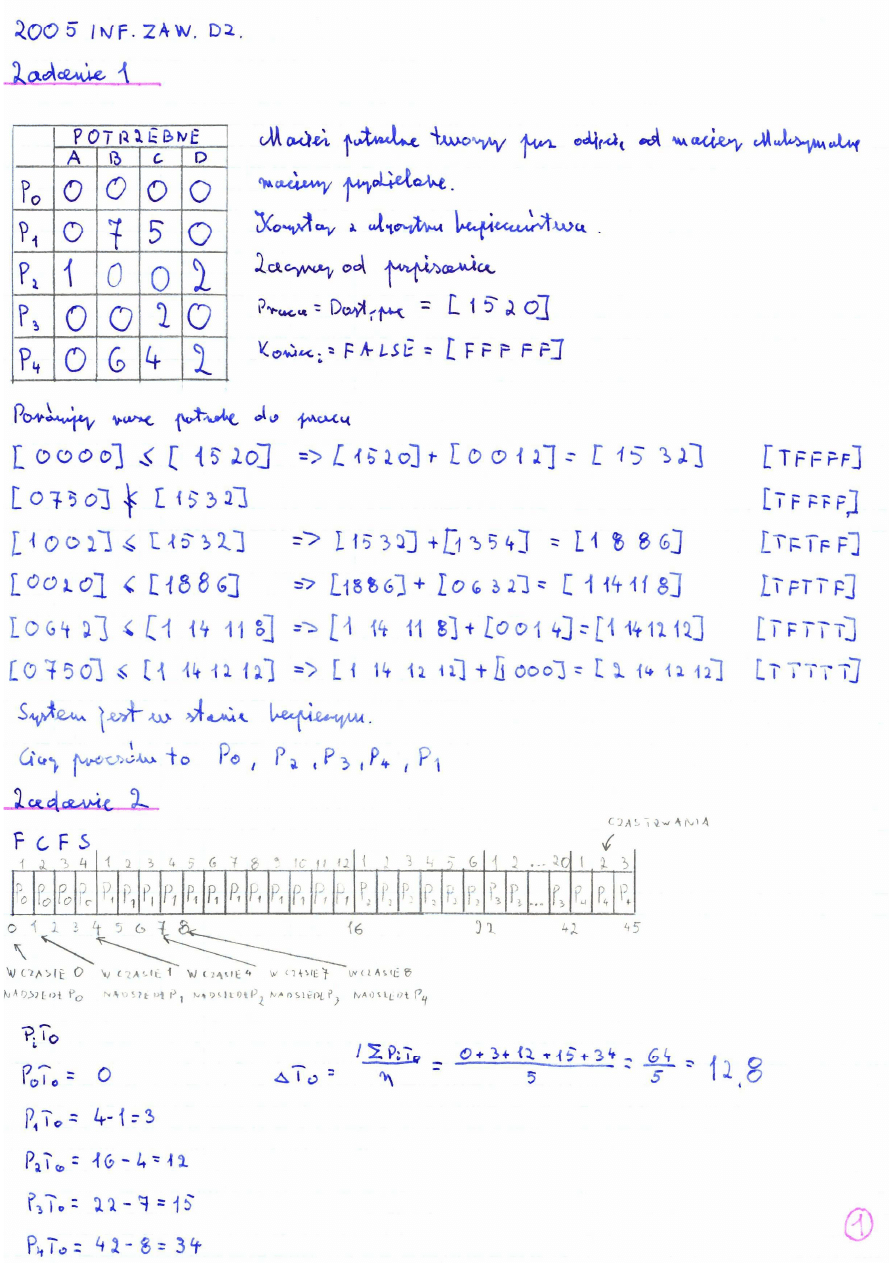 2005 INF. ZAW. D2.
Zadanie 1
POTRZEBNE
A B C D
P0 0 0 0 0
P1 0 7 5 0
P2 1 0 0 2
P3 0 0 2 0
P4 0 6 4 2
Macierz potrzebne tworzy przez odjęcie od macierzy Maksymalne
macierzy przydzielone.
Korzystając z algorytmu bezpieczeństwa.
Zacznę od przypisania
Praca = Dostępne = [1 5 2 0]
Koniec i = FALSE = [F F F F F]
potrzeb do pracy
[0 0 0 0] ≤ [1 5 2 0] => [1 5 2 0] + [0 0 1 2] = [1 5 3 2] [T F F F F]
[0 7 5 0] ≰ [1 5 3 2] [T F F F F]
[1 0 0 2] ≤ [1 5 3 2] => [1 5 3 2] + [1 3 5 4] = [1 8 8 6] [T F T F F]
[0 0 2 0] ≤ [1 8 8 6] => [1 8 8 6] + [0 6 3 2] = [1 14 11 8] [T F T T F]
[0 6 4 2] ≤ [1 14 11 8] => [1 14 11 8] + [0 0 1 4] = [1 14 12 12] [T F T T T]
[0 7 5 0] ≤ [1 14 12 12] => [1 14 12 12] + [1 0 0 0] = [2 14 12 12] [T T T T T]
System jest w stanie bezpiecznym.
Ciąg procesów to P0, P2, P3, P4, P1
Zadanie 2
CZAS TRWANIA
F C F S
1 2 3 4 1 2 3 4 5 6 7 8 9 10 11 12 1 2 3 4 5 6 1 2 ... 20 1 2 3
P0 P0 P0 P0 P1 P1 P1 P1 P1 P1 P1 P1 P1 P1 P1 P1 P2 P2 P2 P2 P2 P2 P3 P3 ... P3 P4 P4 P4
0 1 2 3 4 5 6 7 8 16 22 42 45
W CZASIE 0 W CZASIE 1 W CZASIE 4 W CZASIE 7 W CZASIE 8
NADSZEDŁ P0 NADSZEDŁ P1 NADSZEDŁ P2 NADSZEDŁ P3 NADSZEDŁ P4
PiTo
P0To = 0
ΔTo = |ΣPiTo / n = 0+3+12+15+34 / 5 = 64 / 5 = 12,8
P1To = 4-1=3
P2To = 16-4=12
P3To = 22-7=15
P4To = 42-8=34
1